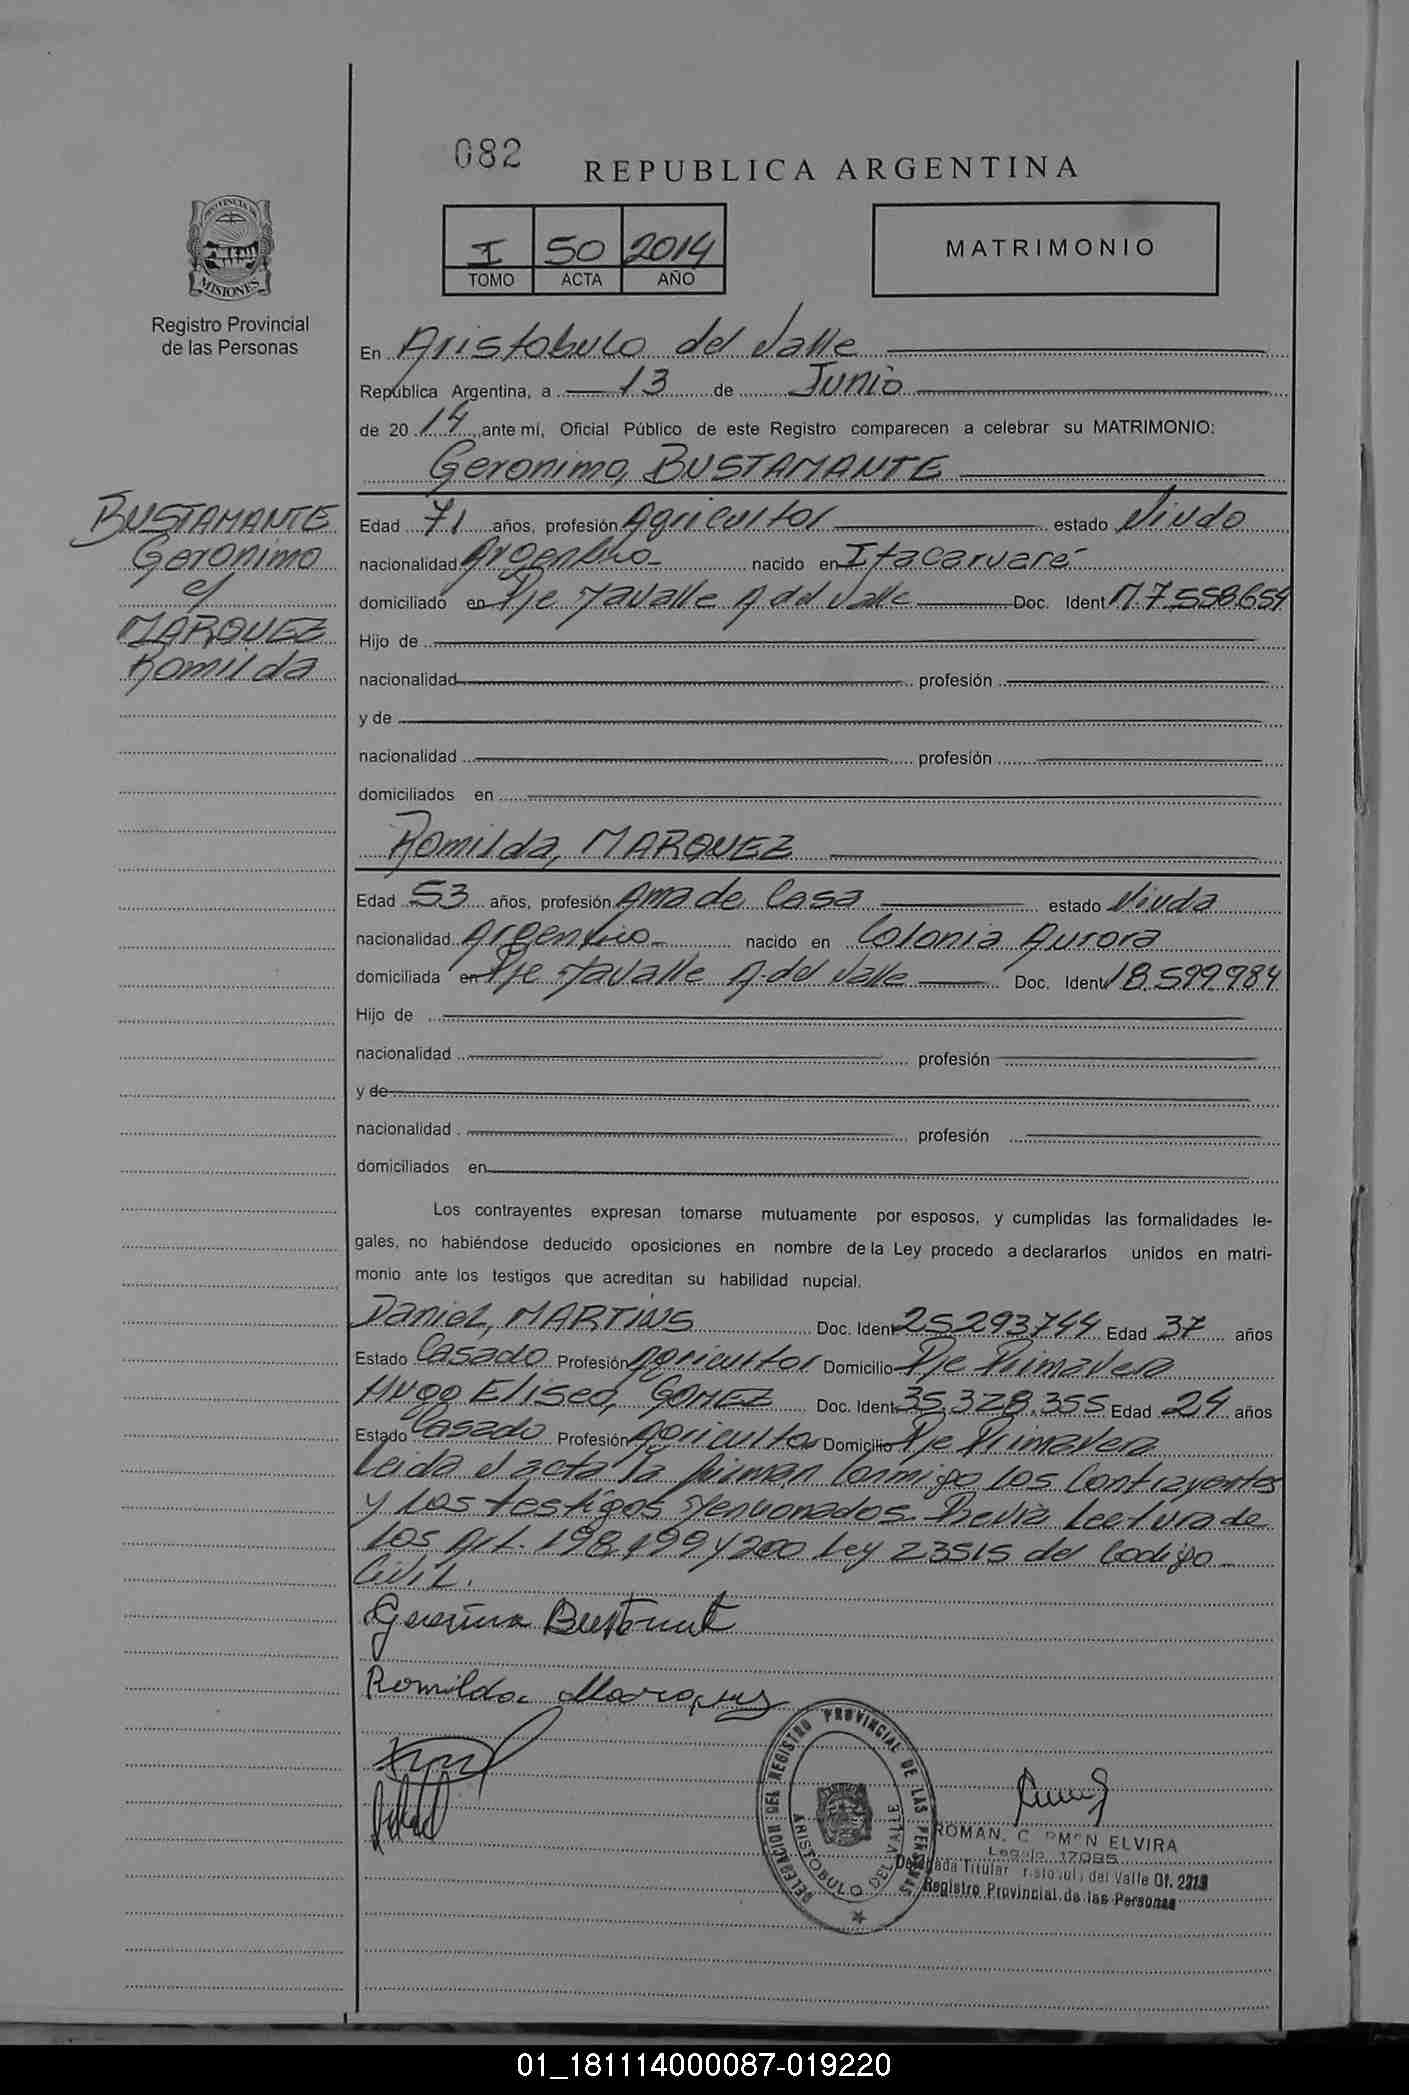 082
REPUBLICA ARGENTINA
I 50 2014
TOMO ACTA AÑO
MATRIMONIO
PROVINCIA DE
MISIONES
Registro Provincial
de las Personas
En Aristobulo del Valle
República Argentina, a 13 de Junio
de 20 14 ,ante mí, Oficial Público de este Registro comparecen a celebrar su MATRIMONIO:
Geronimo, BUSTAMANTE
BUSTAMANTE
Geronimo
c/
MARQUEZ
Romilda
Edad 71 años, profesión Agricultor estado Viudo
nacionalidad Argentino nacido en Itacaruaré
domiciliado en Pje Tavalle A del Valle Doc. Ident M 7.558.654
Hijo de
nacionalidad profesión
y de
nacionalidad profesión
domiciliados en
Romilda, MARQUEZ
Edad 53 años, profesión Ama de Casa estado Viuda
nacionalidad Argentino nacido en Colonia Aurora
domiciliada en Pje Tavalle A. del Valle Doc. Ident 18.599.984
Hijo de
nacionalidad profesión
y de
nacionalidad profesión
domiciliados en
Los contrayentes expresan tomarse mutuamente por esposos, y cumplidas las formalidades le-
gales, no habiéndose deducido oposiciones en nombre de la Ley procedo a declararlos unidos en matri-
monio ante los testigos que acreditan su habilidad nupcial.
Daniel, MARTINS Doc. Ident 25293744 Edad 37 años
Estado Casado Profesión Agricultor Domicilio Pje Primavera
Hugo Eliseo, GOMEZ Doc. Ident 35.328.355 Edad 24 años
Estado Casado Profesión Agricultor Domicilio Pje Primavera
Leida el acta la firman Conmigo los Contrayentes
y los testigos mencionados. Previa Lectura de
los Art. 198,199 y 200 Ley 23515 del Codigo
Civil.
Romilda Marquez
DELEGACION DEL REGISTRO PROVINCIAL DE LAS PERSONAS
ARISTOBULO DEL VALLE
ROMAN, C RMEN ELVIRA
Legajo 17095
Delegada Titular ristobul del Valle Of.
Registro Provincial de las Personas
01_181114000087-019220